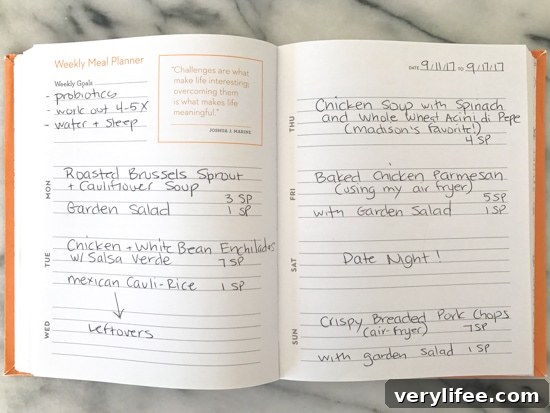 Weekly Meal Planner
Weekly Goals
- probiotics
- work out 4-5x
- water + sleep
"Challenges are what
make life interesting;
overcoming them
is what makes life
meaningful."
JOSHUA J. MARINE
MON
Roasted Brussels Sprout
+ Cauliflower Soup
3 SP
Garden Salad 1 SP
TUE
Chicken + White Bean Enchiladas
w/ Salsa Verde 7 SP
mexican Cauli-Rice 1 SP
WED
Leftovers
DATE 9/11/17 TO 9/17/17
THU
Chicken Soup with Spinach
and Whole Wheat Acini di Pepe
(madison's favorite!)
4 SP
FRI
Baked Chicken Parmesan
(using my air fryer)
5 SP
with Garden Salad 1 SP
SAT
Date Night!
SUN
Crispy Breaded Pork Chops
(air-fryer) 7 SP
with garden Salad 1 SP
verylifee.com